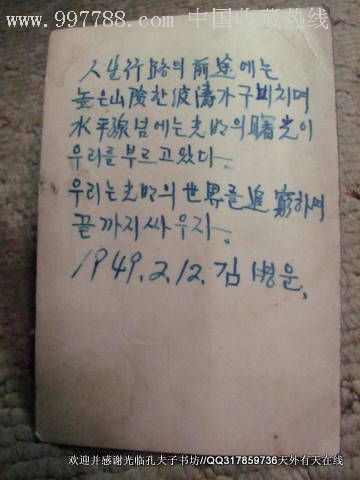 www.997788.com 中国收藏热线
人生行路의 前途에는
높은山險한波濤가구비치며
水平線넘에는光明의曙光이
우리를부르고있다.
우리는光明의世界를追窮하며
끝까지싸우자.
1949.2.12. 김병운.
欢迎并感谢光临孔夫子书坊//QQ317859736天外有天在线